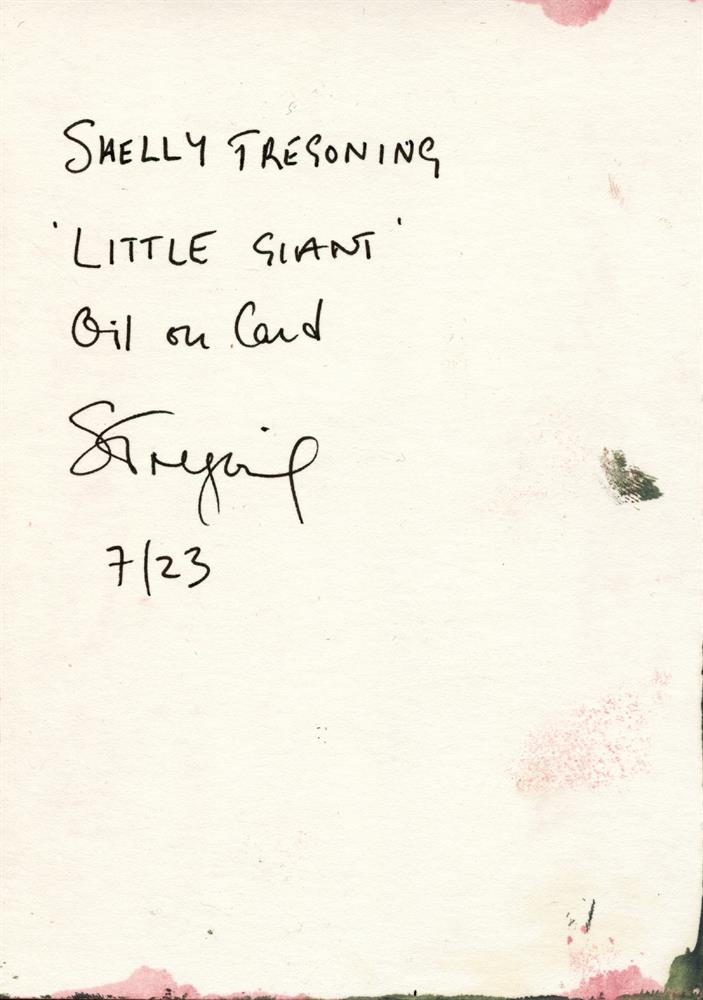 SHELLY TREGONING
'LITTLE GIANT'
Oil on Card
STregoning
7/23